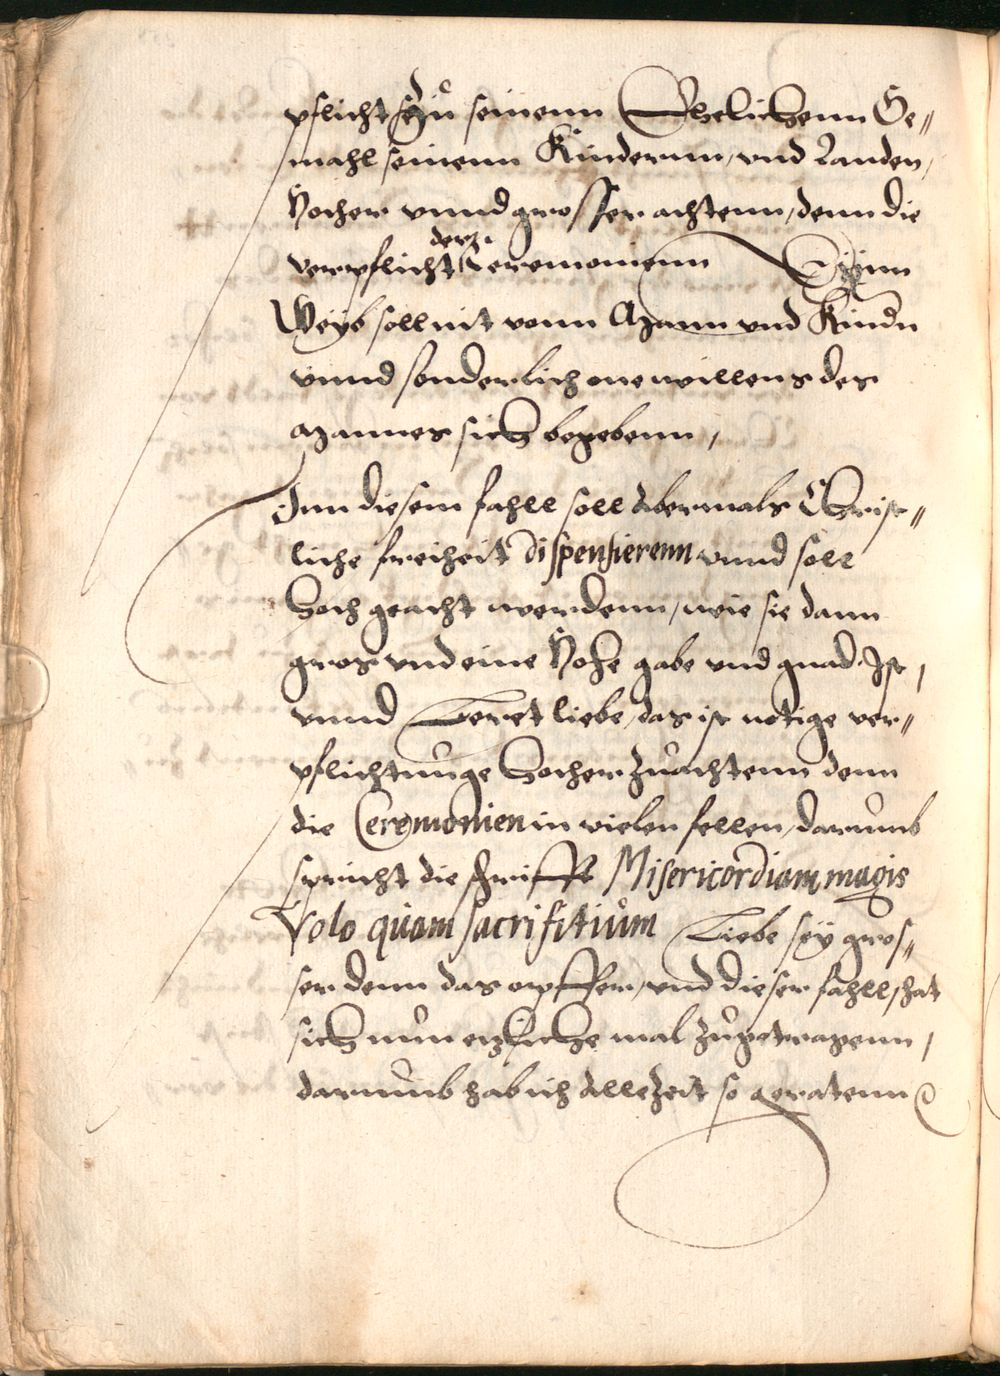 pflicht zu seinenn Ehelichenn Ge„
mahl seinenn Kindernn, vnd Landen,
Hocher vnnd grosser achtenn, denn die
verpflicht der Ceremonienn Eynn
Weyb soll nit vonn Mann und Kindn
vnnd sonderlich one willens des
Mannes sich begebenn,
Inn diesem fahll soll Abermals Christ„
liche freiheit dispensierenn vnnd soll
Hoch geacht werdenn, wie sie dann
gros vnd eine Hohe gabe vnd gnad Ist,
vnnd Leret liebe, das ist notige ver„
pflichtunge Hocher zuachtenn denn
die Ceremonien in vielen fellen, darumb
spricht die schrifft Misericordiam magis
Volo quam sacrifitium Liebe sey gros„
ser denn das opffer, vnd dieser fahll, hat
sich nun etzliche mal zugetragenn,
darumb hab ich Allezeit so geratenn